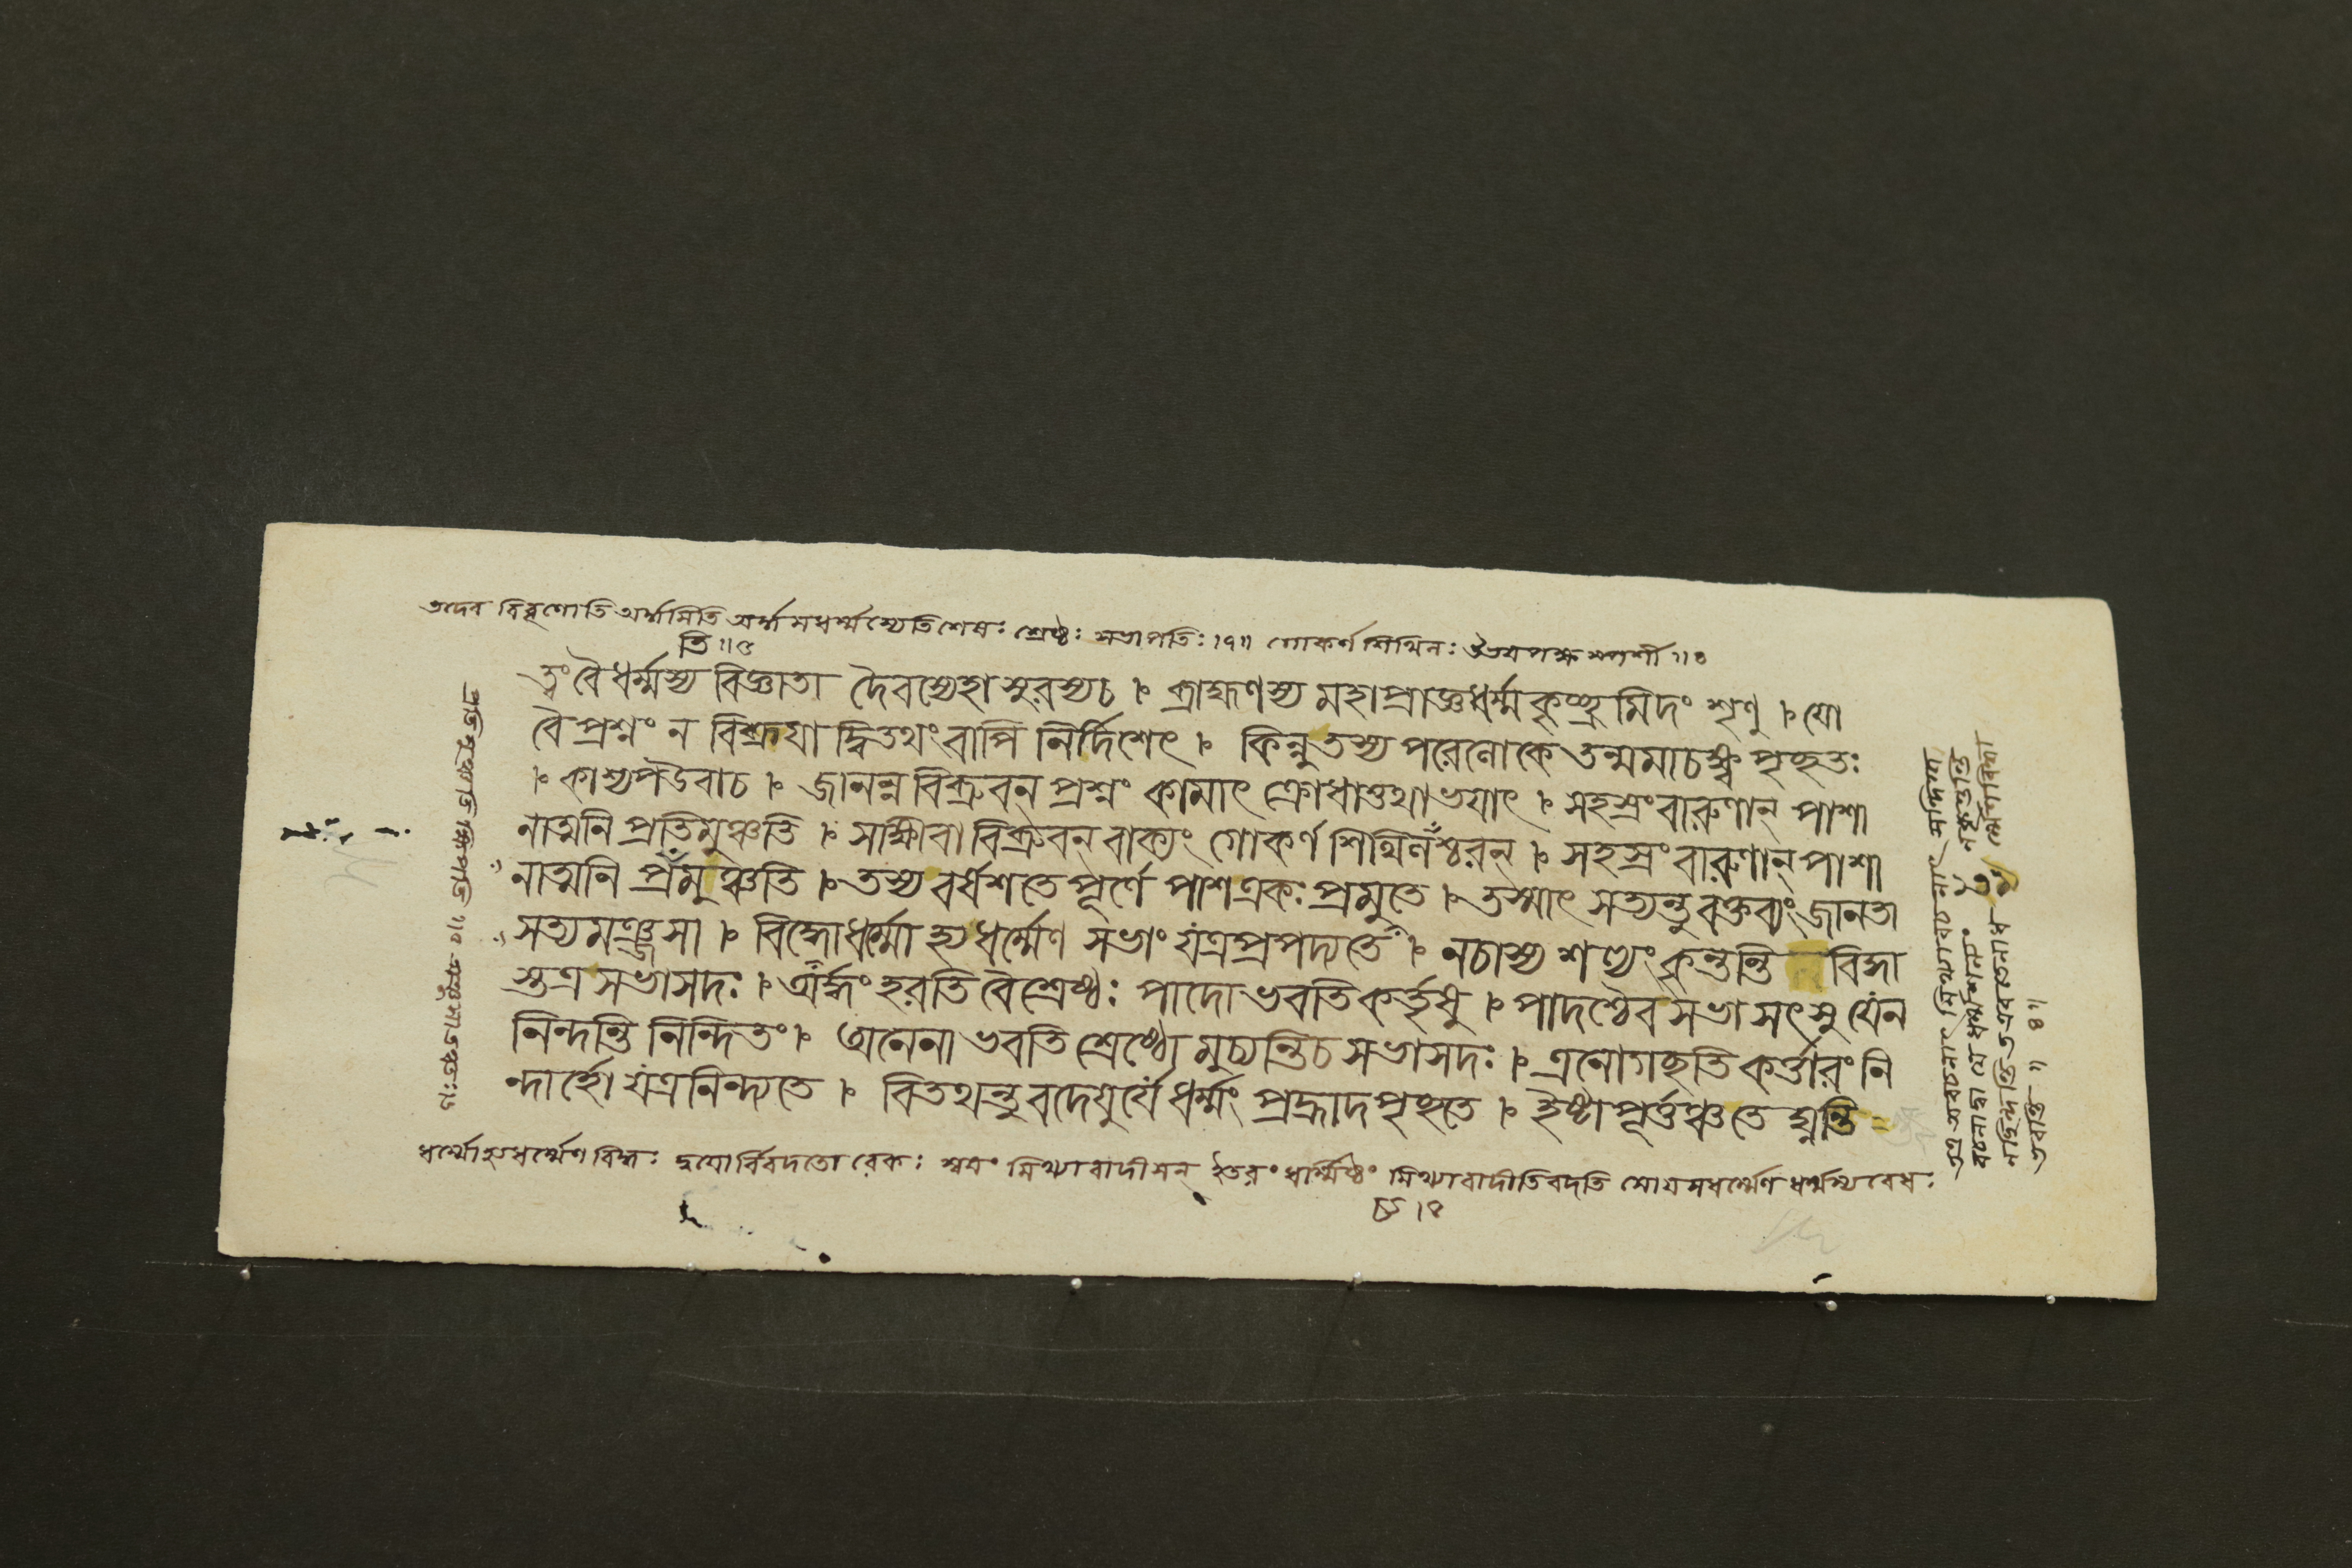 তদেব বিবৃণোতি অর্দ্ধামিতি অর্দ্ধামধর্ম্মস্যেতিশেষঃ শ্রেষ্ঠঃ সভাপতিঃ ।৭॥ গোকর্ণশিথিলঃ
তি ॥৫
ত্বং বৈ ধর্ম্মস্য বিজ্ঞাতা দৈবস্যেহাসুরস্যচ ৷ ব্রাহ্মণস্য মহাপ্রাজ্ঞ ধর্ম্মকৃচ্ছ্রমিদং শৃণু ৷ যো
বৈ প্রশ্নং ন বিব্রূযাদ্বিতথং বাপি নির্দিশেৎ ৷ কিন্নু তস্য পরেলোকে তন্মমাচক্ষ্ব পৃচ্ছতঃ
৷ কাশ্যপউবাচ ৷ জানন্ন বিব্রুবন্ প্রশ্নং কামাৎ ক্রোধাত্তথা ভযাৎ ৷ সহস্রং বারুণান্ পাশা
নাত্মনি প্রতিমুঞ্চতি ৷ সাক্ষীবা বিব্রুবন্ বাক্যং গোকর্ণশিথিলশ্চরন্ ৷ সহস্রং বারুণান্ পাশা
নাত্মনি প্রমুঞ্চতি ৷ তস্য বর্ষশতে পূর্ণে পাশ একঃ প্রমুতে ৷ তস্মাৎ সত্যন্তু বক্তব্যং জানতা
সত্যমঞ্জসা ৷ বিদ্ধোধর্ম্মো হ্যধর্ম্মেণ সভাং যত্রপ্রপদ্যতে ৷ নচাস্য শল্যং কৃন্তন্তি বিদ্ধা
স্তত্র সভাসদঃ ৷ অর্দ্ধং হরতি বৈ শ্রেষ্ঠঃ পাদো ভবতি কর্তৃষু ৷ পাদশ্চৈব সভাসৎসু যেন
নিন্দন্তি নিন্দিতং ৷ অনেনা ভবতি শ্রেষ্ঠো মুচ্যন্তিচ সভাসদঃ ৷ এনোগচ্ছতি কর্ত্তারং নি
ন্দার্হো যত্রনিন্দ্যতে ৷ বিতথন্তু বদেযুর্যে ধর্ম্মং প্রহ্লাদ পৃচ্ছতে ৷ ইষ্টাপূর্ত্তঞ্চতে ঘ্নন্তি
ধর্ম্মোহ্যধর্ম্মেণবিদ্ধঃ দ্বযোর্বিবদতো রেকঃ স্বযং মিথ্যাবাদীসন্ ইতরং ধার্ম্মিষ্ঠং মিথ্যাবাদীতিবদতি সোযমধর্ম্মেণ ধর্ম্মস্যবেধঃ